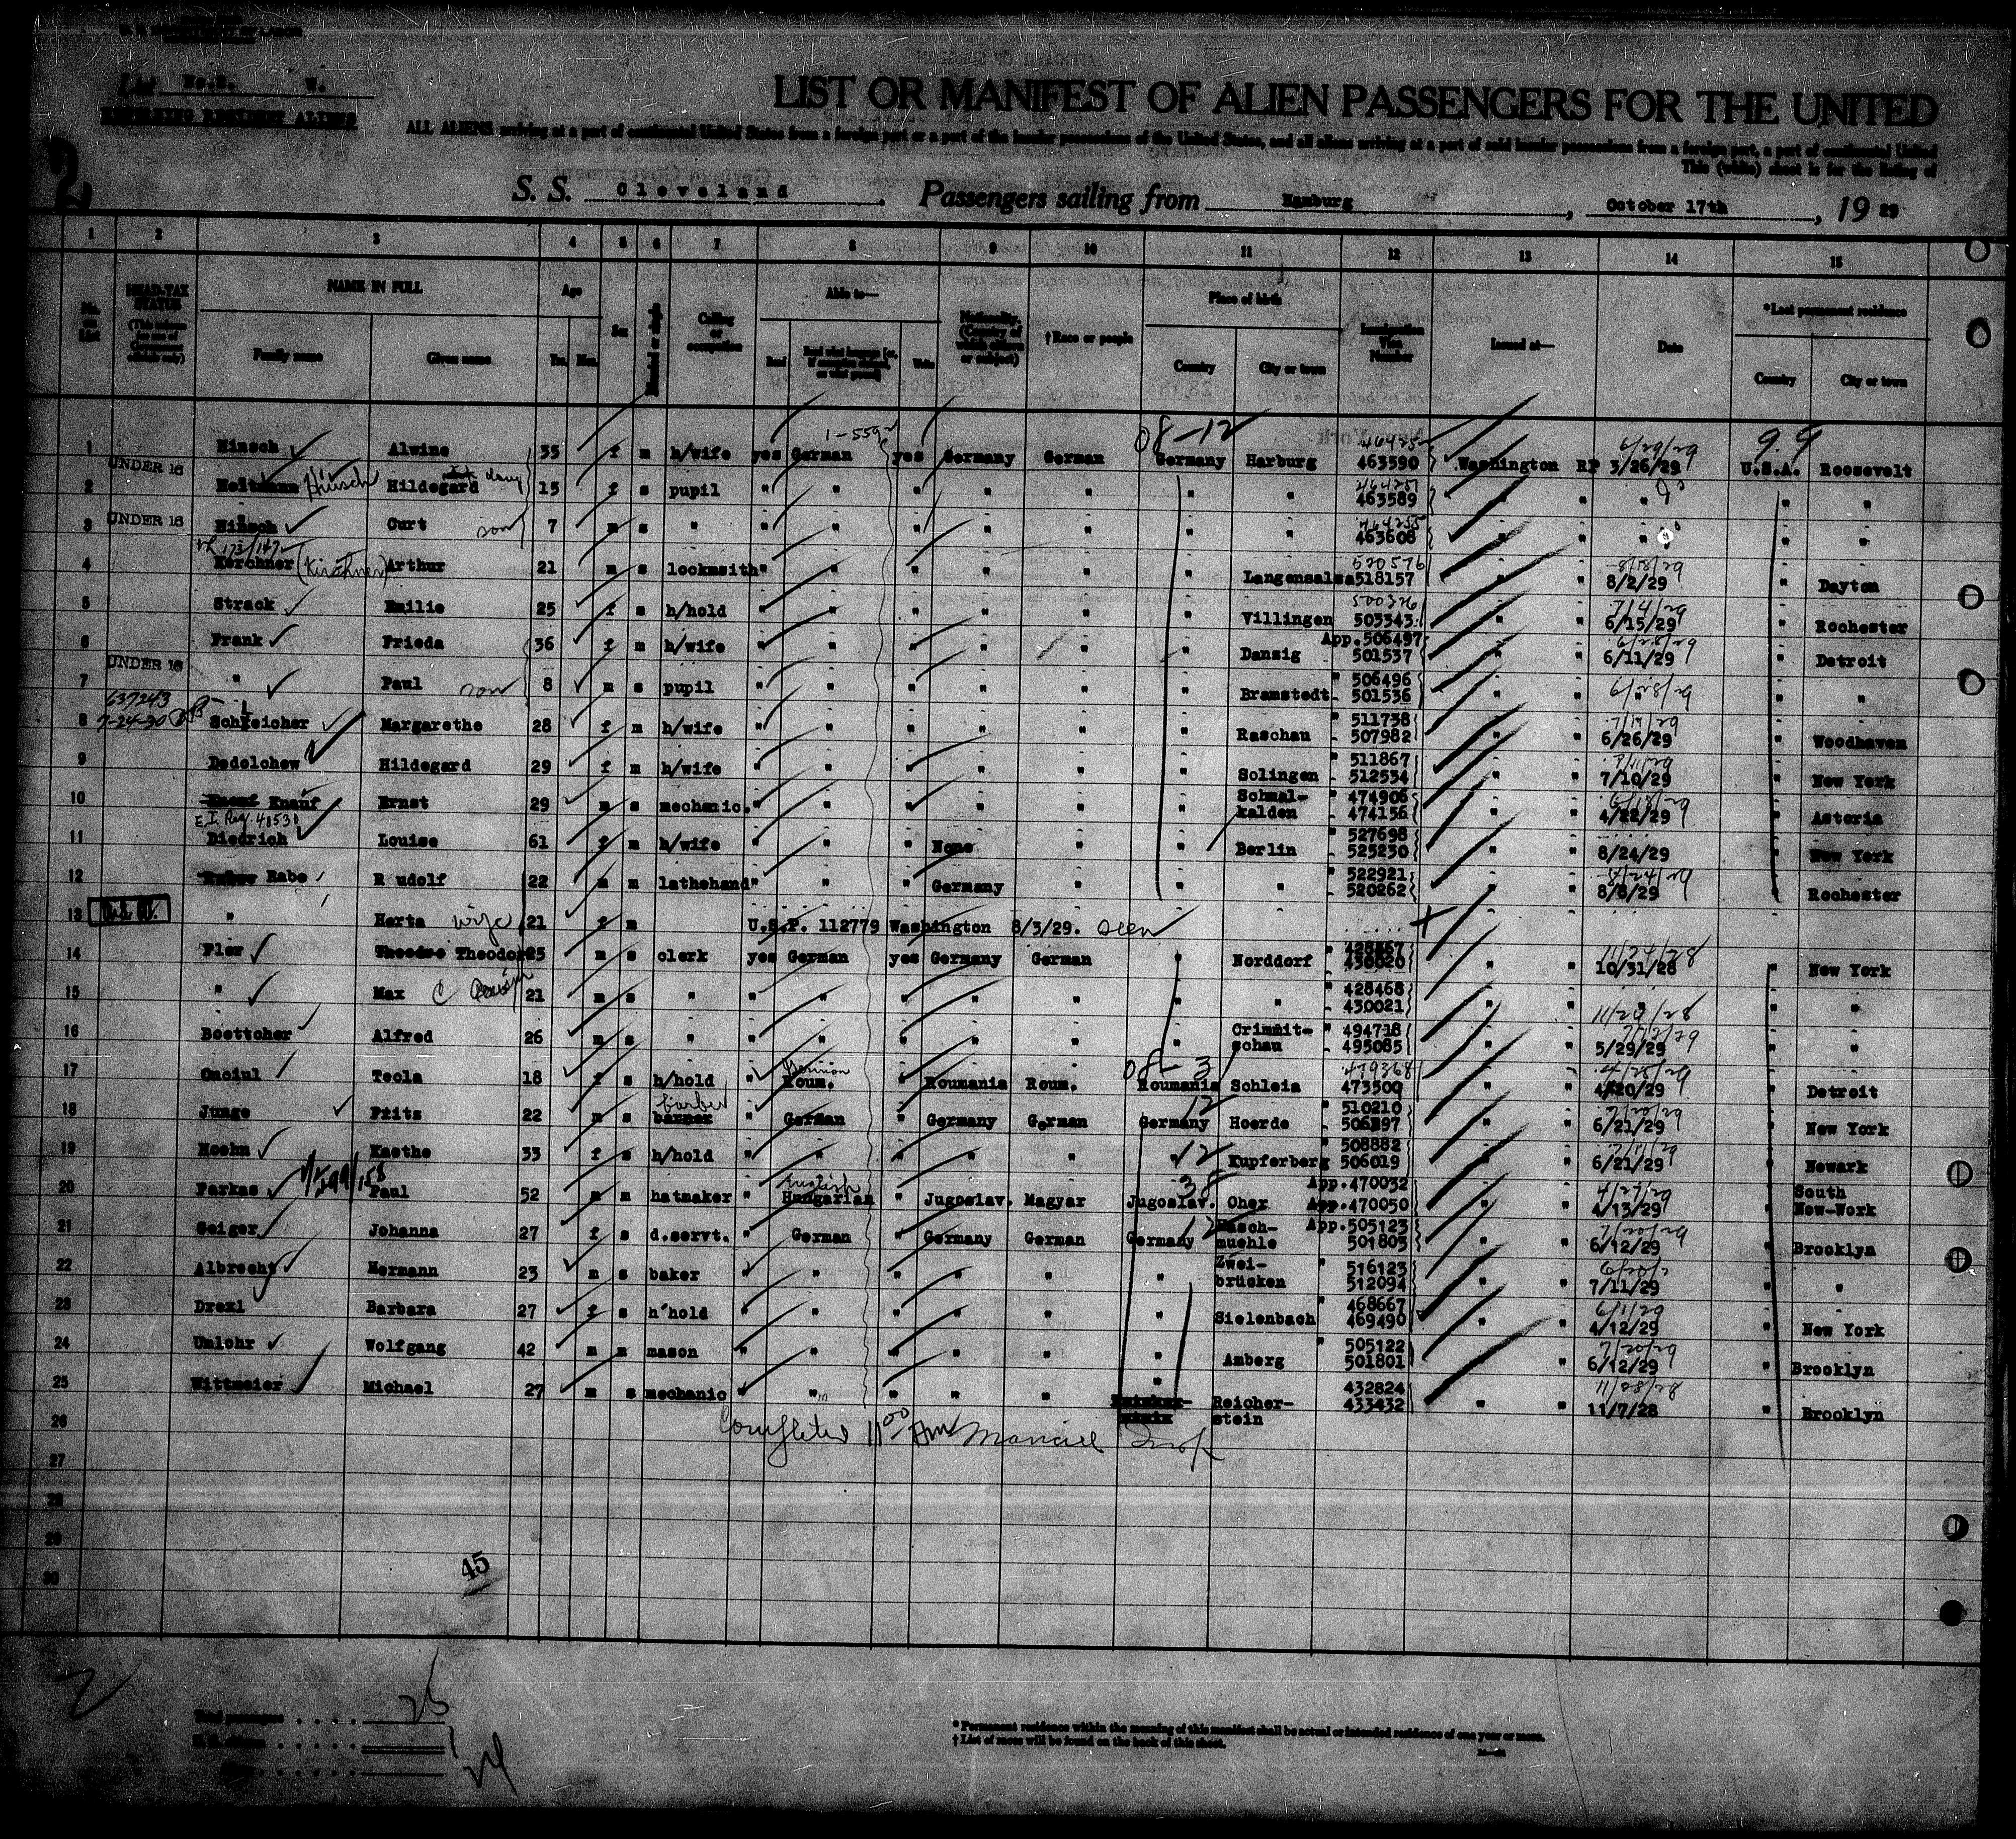 U. S. DEPARTMENT OF LABOR
List No.2. W.
RETURNING RESIDENT ALIENS
2
LIST OR MANIFEST OF ALIEN PASSENGERS FOR THE UNITED
ALL ALIENS arriving at a port of continental United States from a foreign port or a port of the insular possessions of the United States, and all aliens arriving at a port of said insular possessions from a foreign port, a port of continental United
This (white) sheet is for the listing of
S. S. Cleveland. Passengers sailing from Hamburg, October 17th, 19 29
1 2 3 4 5 6 7 8 9 10 11 12 13 14 15
No. on List
HEAD-TAX STATUS
NAME IN FULL
Family name Given name
Age Yrs. Mos.
Sex
Married or single
Calling or occupation
Able to—
Read Read what language [or, if exemption claimed, on what ground] Write
Nationality. (Country of which citizen or subject)
†Race or people
Place of birth
Country City or town
Immigration Visa Number
Issued at—
Date
*Last permanent residence
Country City or town
1-5592 08-12 9.9
1 Hinsch Alwine 35 f m h/wife yes German yes Germany German Germany Harburg 463590 Washington RP 3/26/29 6/29/29 U.S.A. Roosevelt
UNDER 16
2 Heitmann Hinsch Hildegard dau 15 f s pupil " " " " " " " 464251 463589 " " " " "
UNDER 16
3 Hinsch Curt son 7 m s " " " " " " " " 464255 463608 " " " " "
4 Kerchner (Kirchner) Arthur 21 m s locksmith " " " " " " Langensalza 520576 518157 " " 8/2/29 " Dayton
5 Strack Emilie 25 f s h/hold " " " " " " Villingen 500326 503343 " " 7/4/29 6/15/29 " Rochester
6 Frank Frieda 36 f m h/wife " " " " " " Danzig App.506497 501537 " " 6/28/29 6/11/29 " Detroit
UNDER 16
7 " Paul son 8 m s pupil " " " " " " Bramstedt " 506496 501536 " " 6/28/29 " " "
637243
7-24-30
8 Schleicher Margarethe 28 f m h/wife " " " " " " Raschau " 511738 507982 " " 6/26/29 " Woodhaven
9 Dedolchew Hildegard 29 f m h/wife " " " " " " Solingen " 511867 512534 " " 7/11/29 7/10/29 " New York
10 Knauf Ernst 29 m s mechanic. " " " " " " Schmal-kalden " 474906 474156 " " 4/22/29 " Astoria
E.I. Reg. 40530
11 Diedrich Louise 61 f m h/wife " " " None " " Berlin " 527698 525230 " " 8/24/29 " New York
12 Rabe Rudolf 22 m m lathehand " " " Germany " " " " 522921 520262 " " 8/24/29 8/8/29 " Rochester
13 " Herta wife 21 f m U.S.P. 112779 Washington 8/3/29. seen
14 Flor Theodre Theodor 25 m s clerk yes German yes Germany German " Norddorf " 430020 " " 10/31/28 " New York
15 " Max 21 m s " " " " " " " " " 428468 430021 " " 11/29/28 " " "
16 Boettcher Alfred 26 m s " " " " " " " Crimmit-schau " 494718 495085 " " 7/12/29 5/29/29 " "
08-3
17 Onciul Tecla 18 f s h/hold " German Roum. " Roumania Roum. Roumania Schleia 479368 473509 " " 4/25/29 4/20/29 " Detroit
18 Junge Fritz 22 m s barber banner " German " Germany German Germany 12 Hoerde " 510210 506397 " " 7/20/29 6/21/29 " New York
19 Hoehn Kaethe 33 f s h/hold " " " " " " 12 Kupferberg " 508882 506019 " " 6/21/29 " Newark
20 Farkas Paul 52 m m hatmaker " English Hungarian " Jugoslav. Magyar Jugoslav. 38 Oher App.470032 App.470050 " " 4/27/29 4/13/29 " South New-Work
21 Geiger Johanna 27 f s d.servt. " German " Germany German Germany 12 Hasch-muehle App.505123 501803 " " 7/20/29 6/12/29 " Brooklyn
22 Albrecht Hermann 23 m s baker " " " " " " Zwei-brücken " 516123 512094 " " 7/11/29 " "
23 Drexl Barbara 27 f s h'hold " " " " " " Sielenbach " 468667 469490 " " 6/1/29 4/12/29 " New York
24 Umlohr Wolfgang 42 m m mason " " " " " " Amberg " 505122 501801 " " 7/20/29 6/12/29 " Brooklyn
25 Wittmeier Michael 27 m s mechanic " " " " " " Reicher-stein 432824 433432 " " 11/7/28 " Brooklyn
26 Completed 11 00 Am
27
28
29
30
45
Total passengers . . . . 25
U. S. citizens . . . . . 1
Aliens . . . . . 24
* Permanent residence within the meaning of this manifest shall be actual or intended residence of one year or more.
† List of races will be found on the back of this sheet.